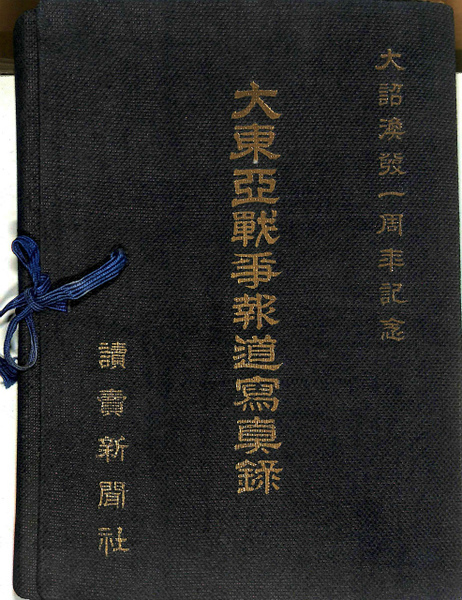 大詔渙發一周年記念
大東亞戰爭報道寫眞錄
讀賣新聞社